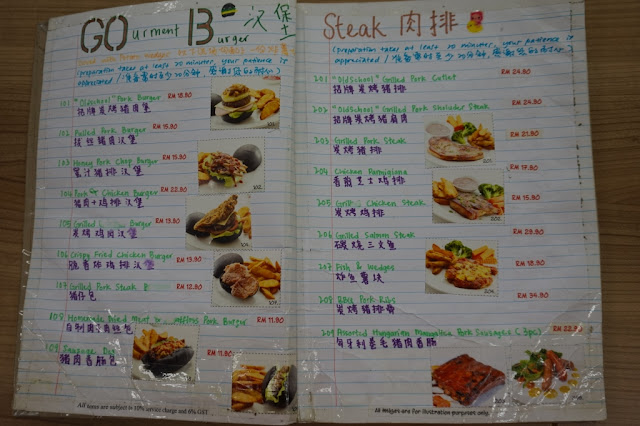 GOurment Burger 汉堡
(preparation takes at least 20 minutes, your patience is
appreciated /
101 "Oldschool" Pork Burger RM 18.90
招牌炭烤猪肉堡
102 Pulled Pork Burger RM 15.90
拉丝猪肉汉堡
103 Honey Pork Chop Burger RM 15.90
蜜汁猪排汉堡
104 Pork & Chicken Burger RM 22.90
猪肉+鸡排汉堡
105 Grilled Burger RM 13.90
炭烤鸡肉汉堡
106 Crispy Fried Chicken Burger RM 13.90
脆香炸鸡排汉堡
107 Grilled Pork Steak B RM 12.90
猪仔包
108 Homemade Pork Burger RM 11.90
109 Sausage Dog RM 11.90
猪肉香肠包
All items are subject to 10% service charge and 6% GST
Steak 肉排
(preparation takes at least 20 minutes, your patience is
appreciated /
201 "OldSchool" Grilled Pork Cutlet RM 24.90
招牌炭烤猪排
202 "OldSchool" Grilled Pork Shoulder Steak RM 24.90
招牌炭烤猪肩肉
203 Grilled Pork Steak RM 21.90
炭烤猪排
204 Chicken Parmigiana RM 17.90
香煎芝士鸡排
205 Grilled Chicken Steak RM 15.90
炭烤鸡排
206 Grilled Salmon Steak RM 28.90
碳烧三文鱼
207 Fish & Wedges RM 18.90
炸鱼薯块
208 BBQ Pork Ribs RM 34.90
炭烤猪排骨
209 Assorted Hungarian Mangalitza Pork Sausages (3pcs) RM 22.90
匈牙利卷毛猪肉香肠
All images are for illustration purposes only.